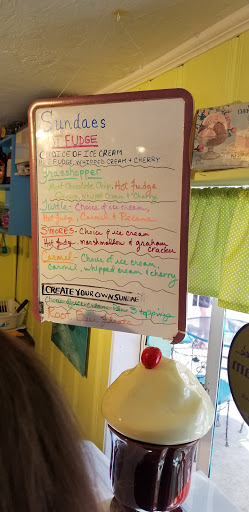 Sundaes
HOT FUDGE
CHOICE OF ICE CREAM
HOT FUDGE, WHIPPED CREAM + CHERRY
Grasshopper
Mint Chocolate Chip, Hot fudge
Whipped Cream & Cherry
Turtle - Choice of ice cream
Hot fudge, Caramel & Pecans
S'MORES - Choice of ice cream
Hot fudge, marshmallow & graham
cracker
Caramel - Choice of ice cream
caramel, whipped cream & cherry
CREATE YOUR OWN SUNDAE
Choice of ice cream 3 toppings
Root Beer Floats